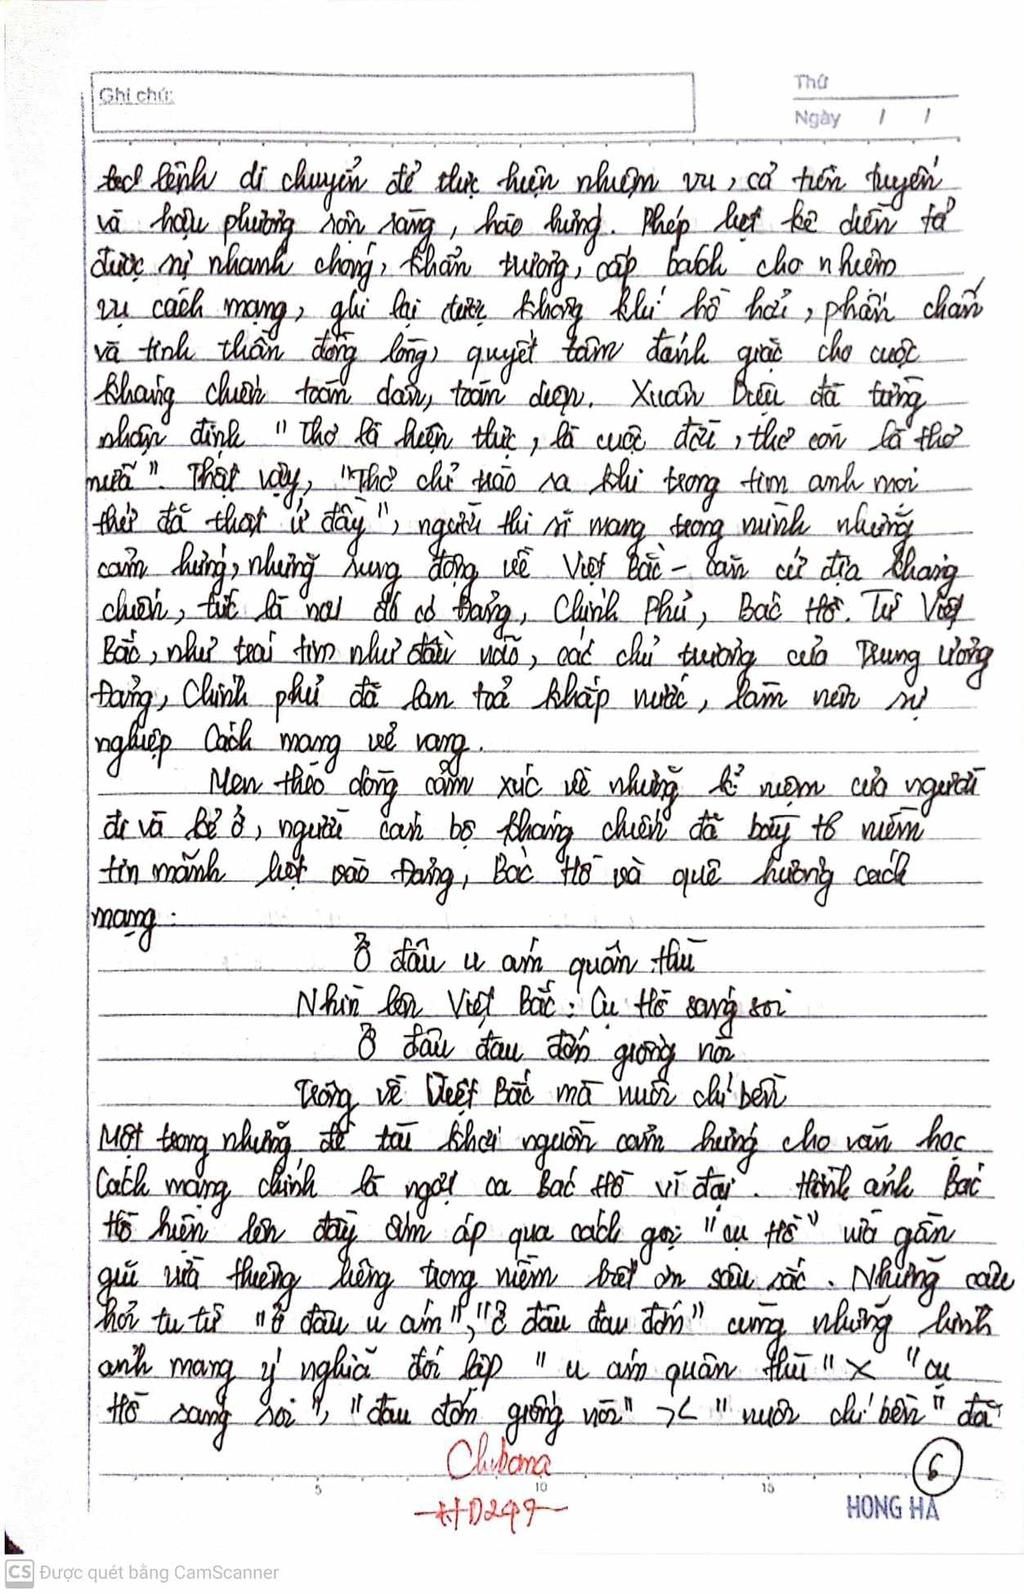 Ghi chú:
Thứ
Ngày / /
lệnh di chuyển để thực hiện nhiệm vụ, cả tiền tuyến
và hậu phương sẵn sàng, hào hứng. Phép liệt kê diễn tả
được sự nhanh chóng, khẩn trương, cấp bách cho nhiệm
vụ cách mạng, ghi lại được không khí hồ hởi, phấn chấn
và tinh thần đồng lòng, quyết tâm đánh giặc cho cuộc
kháng chiến toàn dân, toàn diện. Xuân Diệu đã từng
nhận định "Thơ là hiện thực, là cuộc đời, thơ còn là thơ
nữa". Thật vậy, "Thơ chỉ trào ra khi trong tim anh mọi
thứ đã thật ứ đầy", người thi sĩ mang trong mình những
cảm hứng, những rung động về Việt Bắc - căn cứ địa kháng
chiến, tức là nơi đó có Đảng, Chính Phủ, Bác Hồ. Từ Việt
Bắc, như trái tim như đầu não, các chủ trương của Trung ương
Đảng, Chính phủ đã lan toả khắp nước, làm nên sự
nghiệp Cách mạng vẻ vang.
Men theo dòng cảm xúc về những kỉ niệm của người
đi và kẻ ở, người cán bộ kháng chiến đã bày tỏ niềm
tin mãnh liệt vào Đảng, Bác Hồ và quê hương cách
mạng:
Ở đâu u ám quân thù
Nhìn lên Việt Bắc: Cụ Hồ sáng soi
Ở đâu đau đớn giống nòi
Trông về Việt Bắc mà nuôi chí bền
Một trong những đề tài khơi nguồn cảm hứng cho văn học
Cách mạng chính là ngợi ca Bác Hồ vĩ đại. Hình ảnh Bác
Hồ hiện lên đầy ấm áp qua cách gọi "cụ Hồ" vừa gần
gũi vừa thiêng liêng trong niềm biết ơn sâu sắc. Những câu
hỏi tu từ "ở đâu u ám", "ở đâu đau đớn" cùng những hình
ảnh mang ý nghĩa đối lập "u ám quân thù" >< "cụ
Hồ sáng soi", "đau đớn giống nòi" >< "nuôi chí bền" đã
6
5 10 15
HONG HA
CS Được quét bằng CamScanner